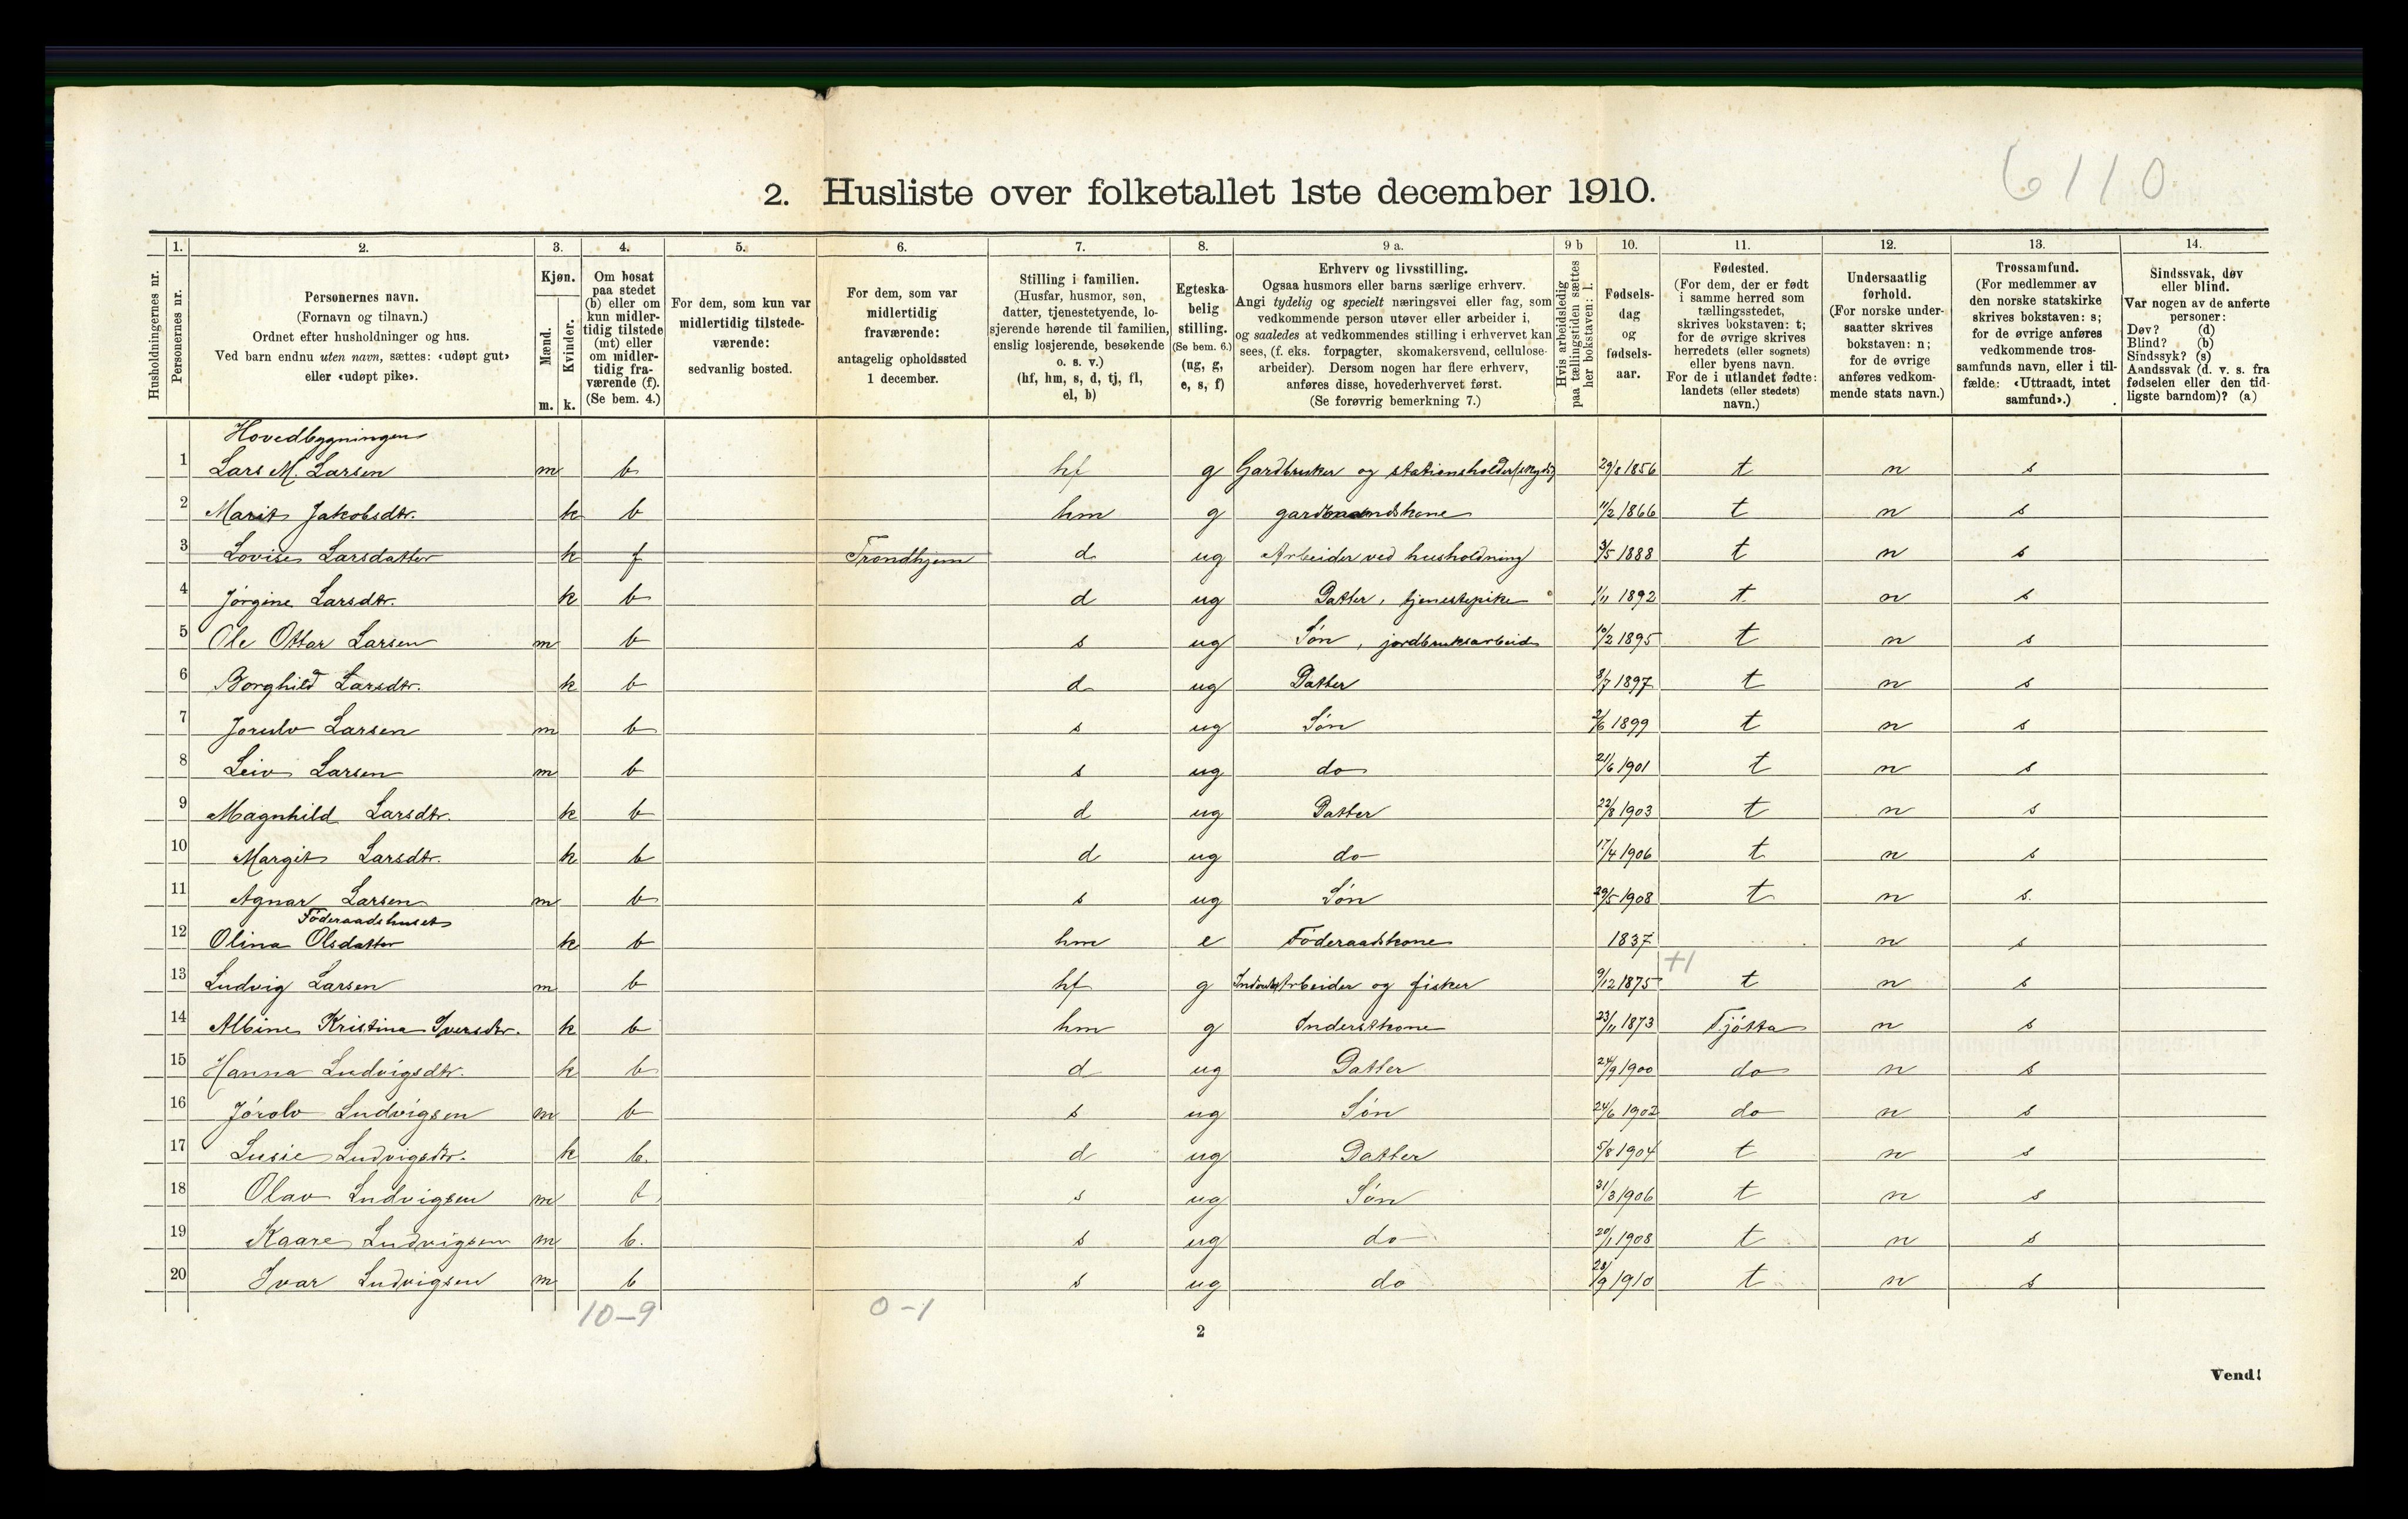 6110
2. Husliste over folketallet 1ste december 1910.
1. 2. 3. 4. 5. 6. 7. 8. 9 a. 9 b 10. 11. 12. 13. 14.
Husholdningernes nr.
Personernes nr.
Personernes navn.
(Fornavn og tilnavn.)
Ordnet efter husholdninger og hus.
Ved barn endnu uten navn, sættes: «udøpt gut»
eller «udøpt pike».
Kjøn.
Mænd.
Kvinder.
m. k.
Om bosat
paa stedet
(b) eller om
kun midler-
tidig tilstede
(mt) eller
om midler-
tidig fra-
værende (f).
(Se bem. 4.)
For dem, som kun var
midlertidig tilstede-
værende:
sedvanlig bosted.
For dem, som var
midlertidig
fraværende:
antagelig opholdssted
1 december.
Stilling i familien.
(Husfar, husmor, søn,
datter, tjenestetyende, lo-
sjerende hørende til familien,
enslig losjerende, besøkende
o. s. v.)
(hf, hm, s, d, tj, fl,
el, b)
Egteska-
belig
stilling.
(Se bem. 6.)
(ug, g,
e, s, f)
Erhverv og livsstilling.
Ogsaa husmors eller barns særlige erhverv.
Angi tydelig og specielt næringsvei eller fag, som
vedkommende person utøver eller arbeider i,
og saaledes at vedkommendes stilling i erhvervet kan
sees, (f. eks. forpagter, skomakersvend, cellulose-
arbeider). Dersom nogen har flere erhverv,
anføres disse, hovederhvervet først.
(Se forøvrig bemerkning 7.)
Hvis arbeidsledig
paa tællingstiden sættes
her bokstaven: l.
Fødsels-
dag
og
fødsels-
aar.
Fødested.
(For dem, der er født
i samme herred som
tællingsstedet,
skrives bokstaven: t;
for de øvrige skrives
herredets (eller sognets)
eller byens navn.
For de i utlandet fødte:
landets (eller stedets)
navn.)
Undersaatlig
forhold.
(For norske under-
saatter skrives
bokstaven: n;
for de øvrige
anføres vedkom-
mende stats navn.)
Trossamfund.
(For medlemmer av
den norske statskirke
skrives bokstaven: s;
for de øvrige anføres
vedkommende tros-
samfunds navn, eller i til-
fælde: «Uttraadt, intet
samfund».)
Sindssvak, døv
eller blind.
Var nogen av de anførte
personer:
Døv? (d)
Blind? (b)
Sindssyk? (s)
Aandssvak (d. v. s. fra
fødselen eller den tid-
ligste barndom)? (a)
Hovedbygningen
1 Lars M. Larsen m b hf g Gardbruker og stationsholder (skyds) 29/8 1856 t n s
2 Marit Jakobsdtr. k b hm g gardmandskone 11/2 1866 t n s
3 Lovise Larsdatter k f Trondhjem d ug Arbeider ved husholdning 3/5 1888 t n s
4 Jørgine Larsdtr. k b d ug Datter, tjenestepike 1/11 1892 t n s
5 Ole Ottar Larsen m b s ug Søn, jordbruksarbeid 10/2 1895 t n s
6 Borghild Larsdtr. k b d ug Datter 8/7 1897 t n s
7 Jorulv Larsen m b s ug Søn 2/6 1899 t n s
8 Leiv Larsen m b s ug do 21/6 1901 t n s
9 Magnhild Larsdtr. k b d ug Datter 22/8 1903 t n s
10 Margit Larsdtr. k b d ug do 17/4 1906 t n s
11 Agnar Larsen m b s ug Søn 29/5 1908 t n s.
Föderaadshuset
12 Olina Olsdatter k b hm e Föderaadskone 1837 n s
+1
13 Ludvig Larsen m b hf g Inderst Arbeider og fisker 9/12 1875 t n s
14 Albine Kristina Iversdtr. k b hm g Inderstkone 23/11 1873 Tjótta n s
15 Hanna Ludvigsdtr. k b d ug Datter 24/9 1900 do n s
16 Jórolv Ludvigsen m b s ug Søn 24/6 1902 do n s
17 Lusie Ludvigsdtr. k b. d ug Datter 5/8 1904 t n s
18 Olav Ludvigsen m b s ug Søn 31/3 1906 t n s
19 Kaare Ludvigsen m b. s ug do 20/1 1908 t n s
20 Ivar Ludvigsen m b s ug do 28/9 1910 t n s
10-9 0-1
2
Vend!